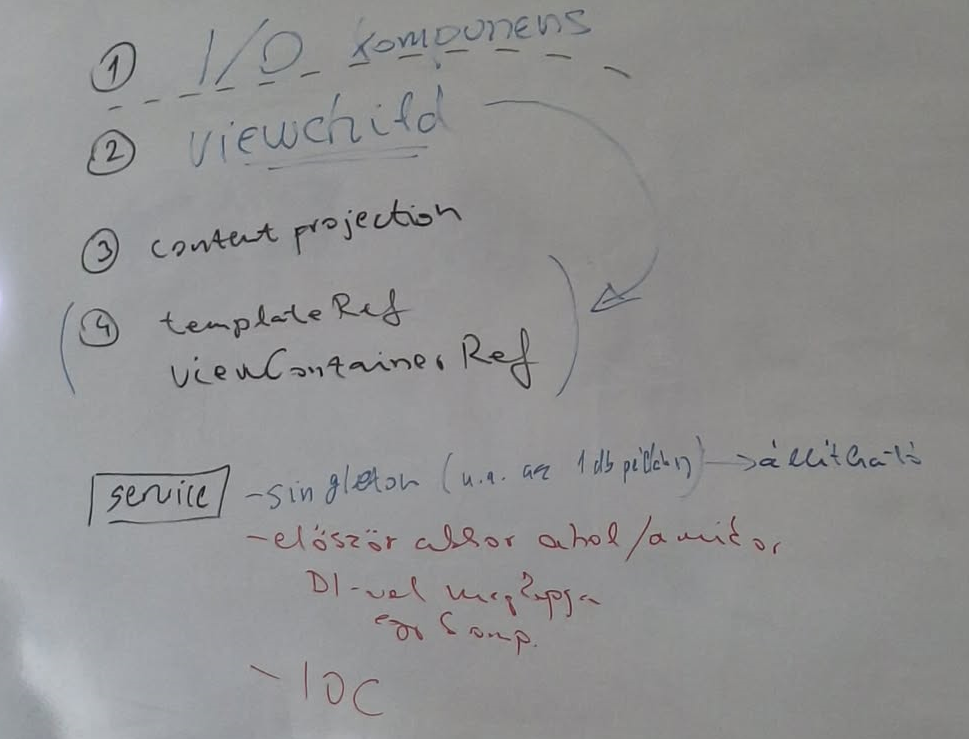 ① I/O komponens
② viewchild
③ content projection
④ templateRef
viewContainerRef
service - singleton (u.a. az 1 db példány) → állítható
- először akkor ahol/amikor
DI-vel megkapja
egy komp.
- IOC